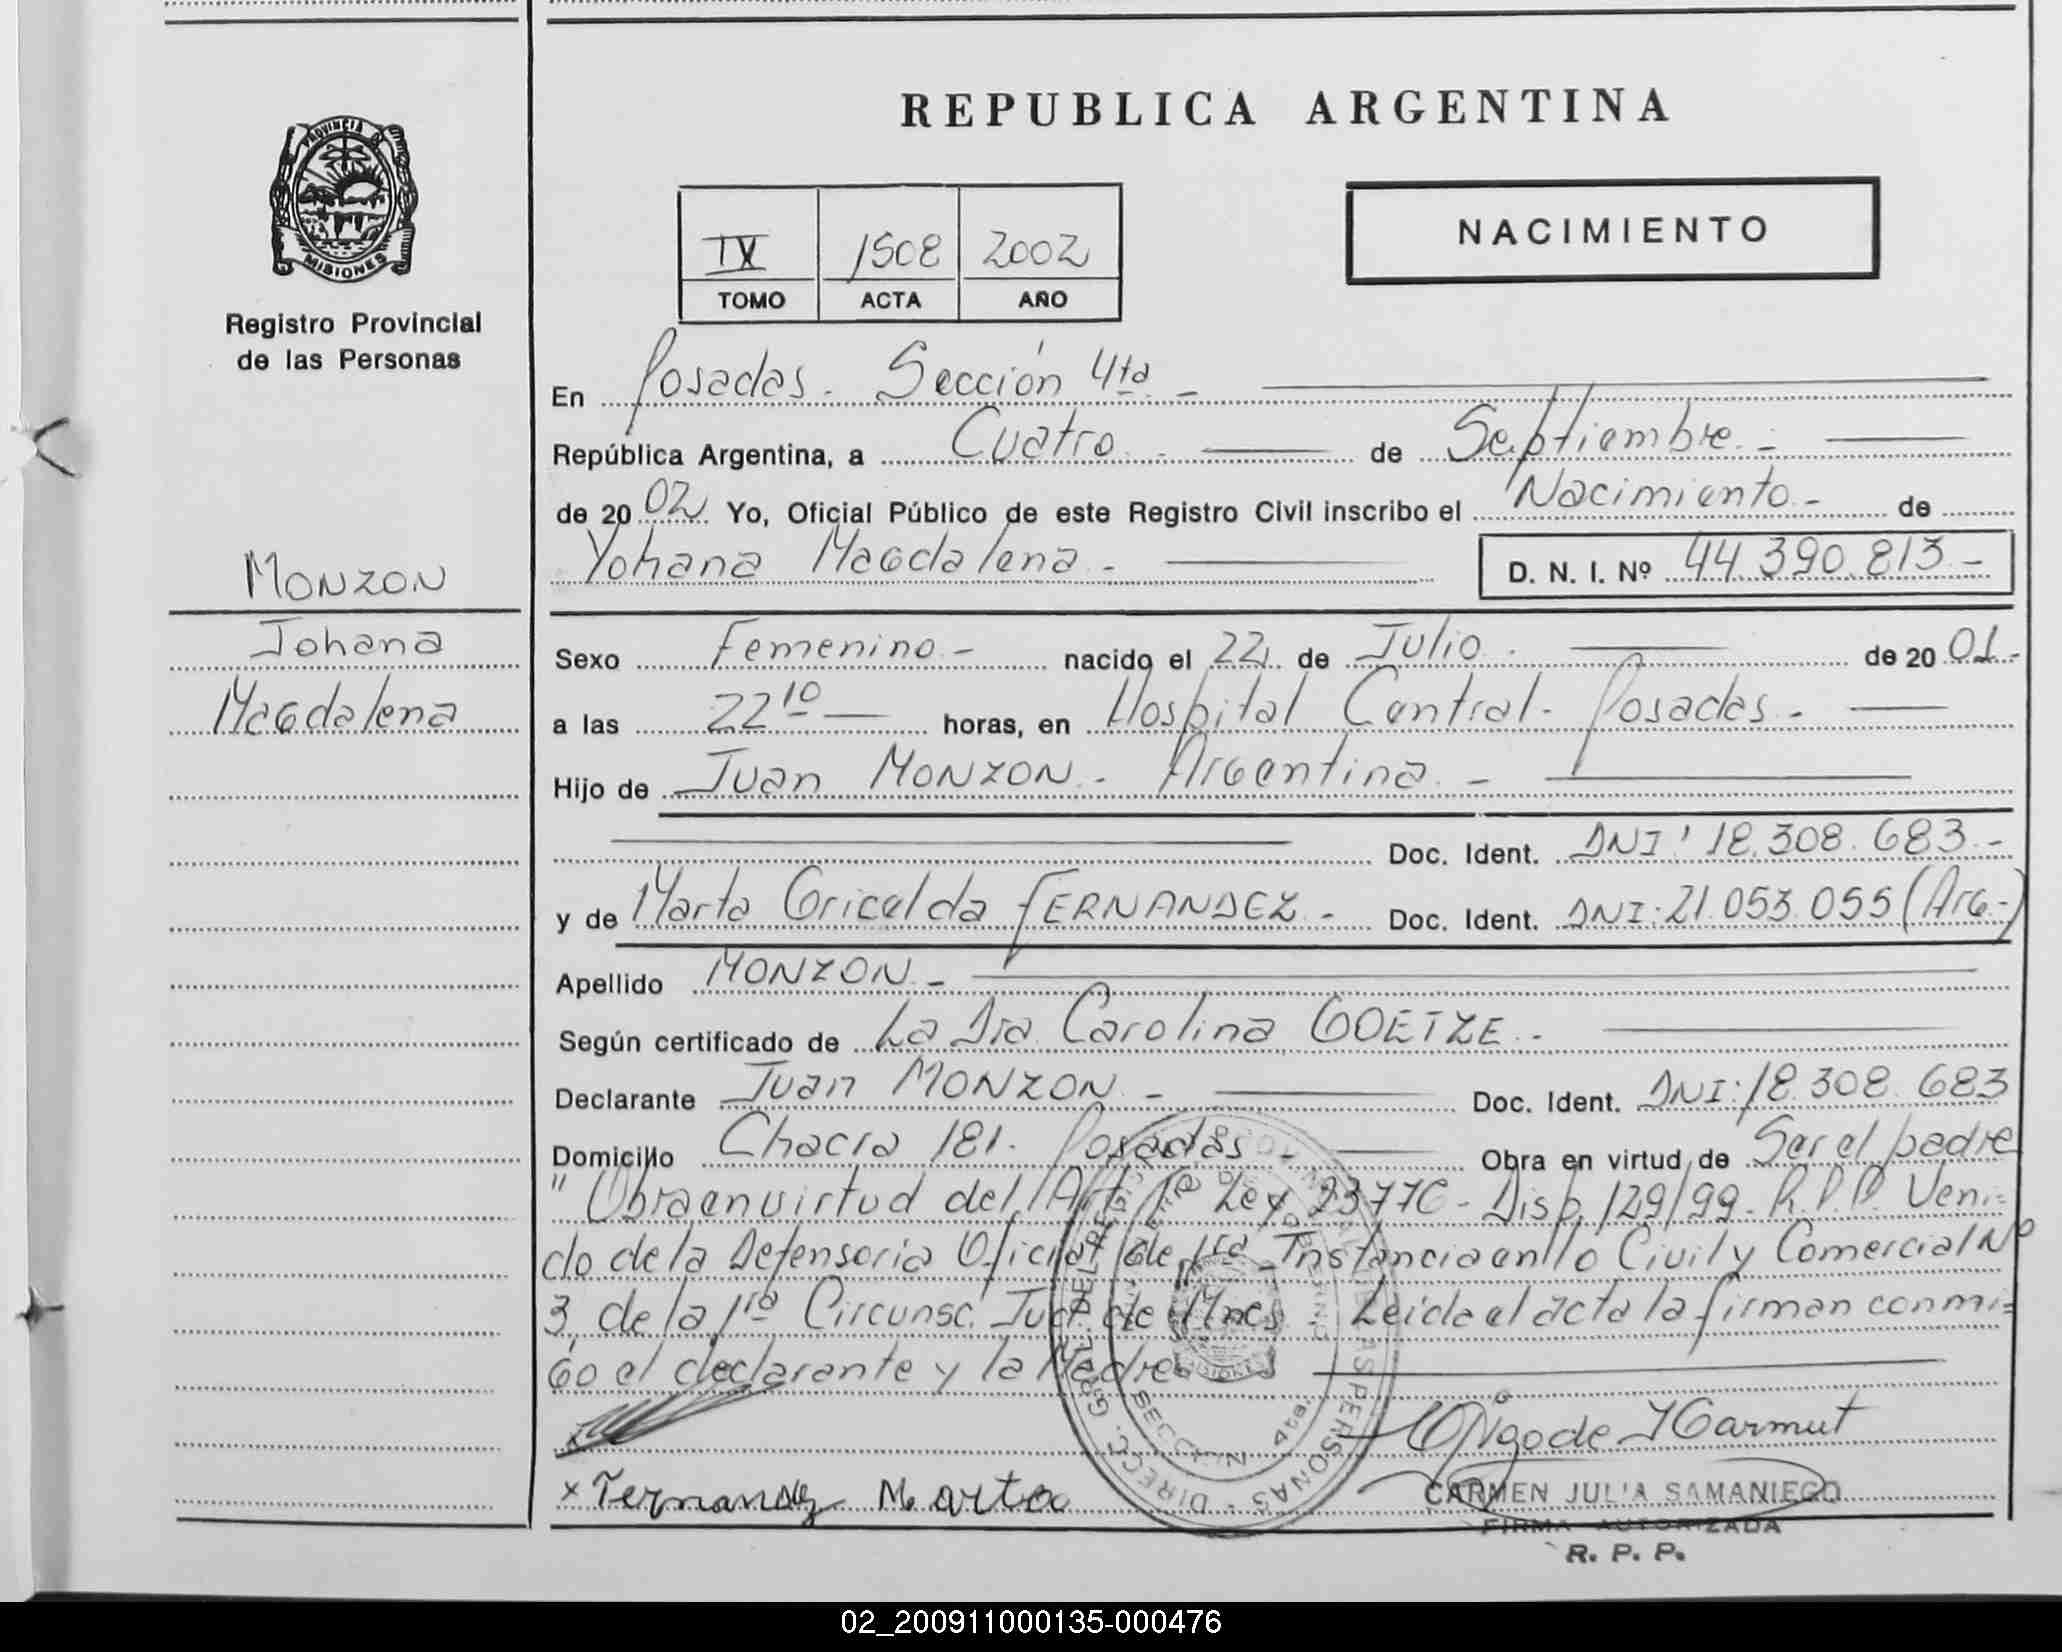 REPUBLICA ARGENTINA
PROVINCIA DE
MISIONES
Registro Provincial
de las Personas
IV 1508 2002
TOMO ACTA AÑO
NACIMIENTO
En Posadas. Sección 4ta. -
República Argentina, a Cuatro. - de Septiembre. -
de 20 02 Yo, Oficial Público de este Registro Civil inscribo el Nacimiento. - de
Yohana Magdalena. - D. N. I. Nº 44.390.813 -
MONZON
Johana
Magdalena
Sexo Femenino. - nacido el 22 de Julio. de 20 01.-
a las 22 10 horas, en Hospital Central - Posadas. -
Hijo de Juan MONZON. - Argentina. -
Doc. Ident. DNI: 18.308.683. -
y de Marta Gricelda FERNANDEZ. - Doc. Ident. DNI: 21.053.055 (Arg.-)
Apellido MONZON. -
Según certificado de La Dra. Carolina GOETZE. -
Declarante Juan MONZON. - Doc. Ident. DNI: 18.308.683
Domicilio Chacra 181. Posadas - Obra en virtud de Ser el padre
"Obra en virtud del Art. 1º Ley 23776 - Disp. 129/99. R.P.P. Veni=
do de la Defensoria Oficial de 1ra Instancia en lo Civil y Comercial Nº
3, de la 1ra Circunsc. Jud. de Mnes. Leida el acta la firman conmi=
go el declarante y la Madre.
x Fernandez Marta
CARMEN JULIA SAMANIEGO
FIRMA AUTORIZADA
R. P. P.
DIRECC. GRAL. DEL REGISTRO PROVINCIAL DE LAS PERSONAS
SECCION 4ta.
02_200911000135-000476